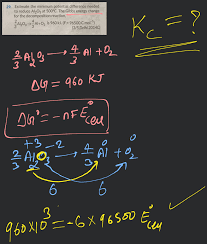 24. Estimate the minimum potential difference needed
to reduce Al₂O₃ at 500°C. The Gibbs energy change
for the decomposition reaction
2/3 Al₂O₃ → 4/3 Al + O₂ is 960 kJ
K_C = ?
2/3 Al₂O₃ → 4/3 Al + O₂
ΔG = 960 KJ
ΔG° = -nFE°cell
+3 -2 0 0
2/3 Al₂O₃ → 4/3 Al + O₂
6 6
960×10³ = -6 × 96500 E°cell